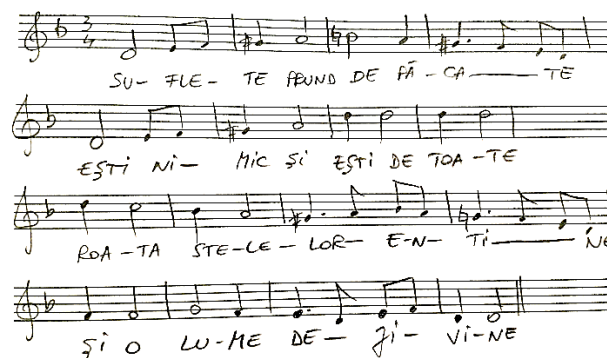 3
4
SU- FLE- TE PRUND DE PĂ-CA — TE
EȘTI NI- MIC ȘI EȘTI DE TOA-TE
ROA-TA STE-LE-LOR- E-N- TI — NE
ȘI O LU-ME DE- JI- VI-NE